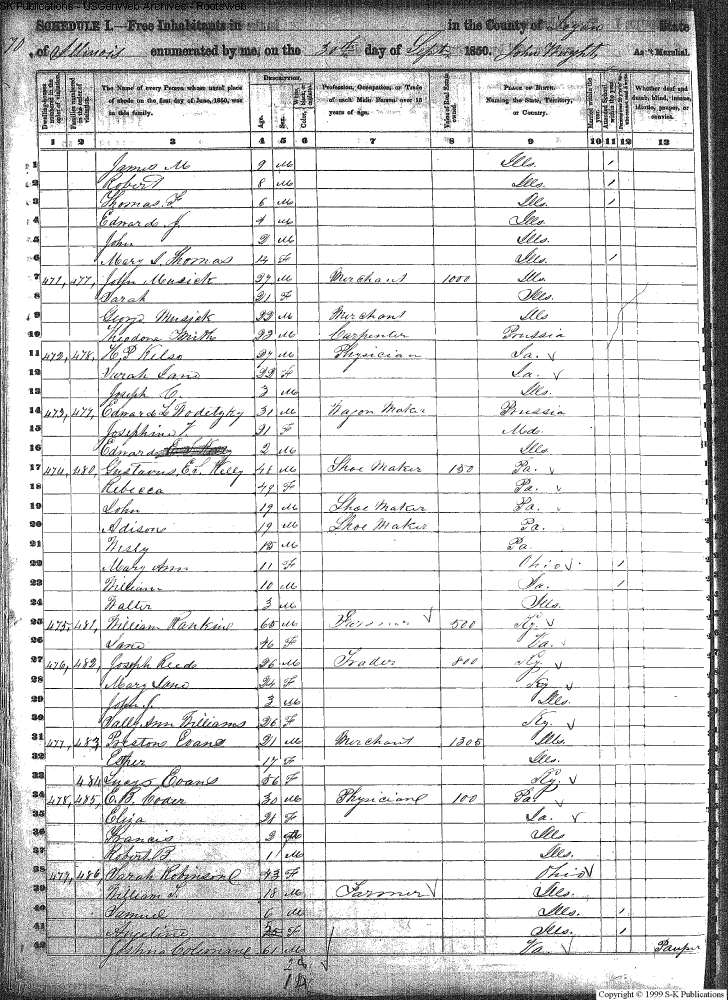 S-K Publications - USGenWeb Archives - Rootsweb
SCHEDULE I.—Free Inhabitants in in the County of Logan State
70 of Illinois enumerated by me, on the 30th day of Sept 1850. John Wright Ass't Marshal.
Dwelling-houses numbered in the order of visitation.
Families numbered in the order of visitation.
The Name of every Person whose usual place of abode on the first day of June, 1850, was in this family.
Description.
Age.
Sex.
White, black, or mulatto. Color
Profession, Occupation, or Trade of each Male Person over 15 years of age.
Value of Real Estate owned.
Place of Birth. Naming the State, Territory, or Country.
Married within the year.
Attended School within the year.
Whether deaf and dumb, blind, insane, idiotic, pauper, or convict.
1 2 3 4 5 6 7 8 9 10 11 12 13
1 James M 9 M Ills. /
2 Robert 8 M Ills. /
3 Thomas F 6 M Ills. /
4 Edward J. 4 M Ills.
5 John 2 M Ills.
6 Mary S. Thomas 14 F Ills. /
7 471, 477, John Musick 27 M Merchant 1000 Ills.
8 Sarah 21 F Ills.
9 George Musick 22 M Merchant Ills
10 Theodore Smith 22 M Carpenter Prussia
11 472, 478, H. P. Kelso 27 M Physician Ia. √
12 Sarah Jane 22 F Ia. √
13 Joseph C. 3 M Ills.
14 473, 479, Edward 31 M Wagon Maker Prussia
15 Josephine T. 21 F Md.
16 Edward 2 M Ills.
17 474, 480, Gustavus E. Kelly 48 M Shoe Maker 150 Pa. √
18 Rebecca 49 F Pa. √
19 John 19 M Shoe Maker Pa.
20 Adison 19 M Shoe Maker Pa.
21 Wesly 15 M Pa.
22 Mary Ann 11 F Ohio √ /
23 William 10 M Ia. /
24 Walter 3 M Ills.
25 475, 481, William Rankin 65 M Farmer √ 500 Ky. √
26 Jane F Va. √
27 476, 482, Joseph Reed 26 M Trader 800 Ky. √
28 Mary Jane 24 F Ky √
29 John J. 3 M Ills.
30 Sally Ann Williams 26 F Ky. √
31 477, 483 Preston Evans 21 M Merchant 1305 Ills.
32 Esther 17 F Ills.
33 484 Lucy Evans 56 F Ky. √
34 478, 485, E. B. Coder 30 M Physician 100 Pa. √
35 Eliza 21 F Ia. √
36 Francis 2 Ills
37 Robert B 1 M Ills.
38 479, 486 Sarah Robinson 43 F Ohio √
39 William T. 18 M Farmer √ Ills.
40 Samuel 6 M Ills. /
41 Angeline F Ills. /
42 Joshua Coleman 61 M Va. √ Pauper
Copyright © 1999 S-K Publications